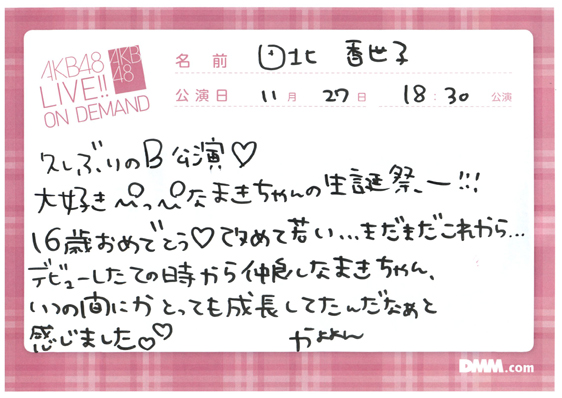 AKB48
LIVE!!
ON DEMAND
AKB
48
名前 田北 香世子
公演日 11月 27日 18:30 公演
久しぶりのB公演♡
大好きぴっぴなまきちゃんの生誕祭ー!!!
16歳おめでとう♡改めて若い...まだまだこれから...
デビューしたての時から仲良しなまきちゃん、
いつの間にかとっても成長してたんだなぁと
感じました♡♡
かよよん
DMM.com